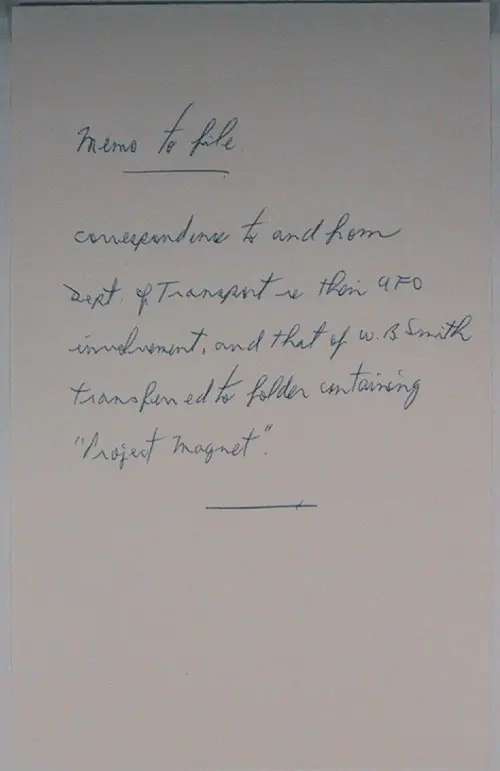 Memo to file
correspondence to and from
Dept. of Transport re their UFO
involvement, and that of W.B. Smith
transferred to folder containing
"Project Magnet".